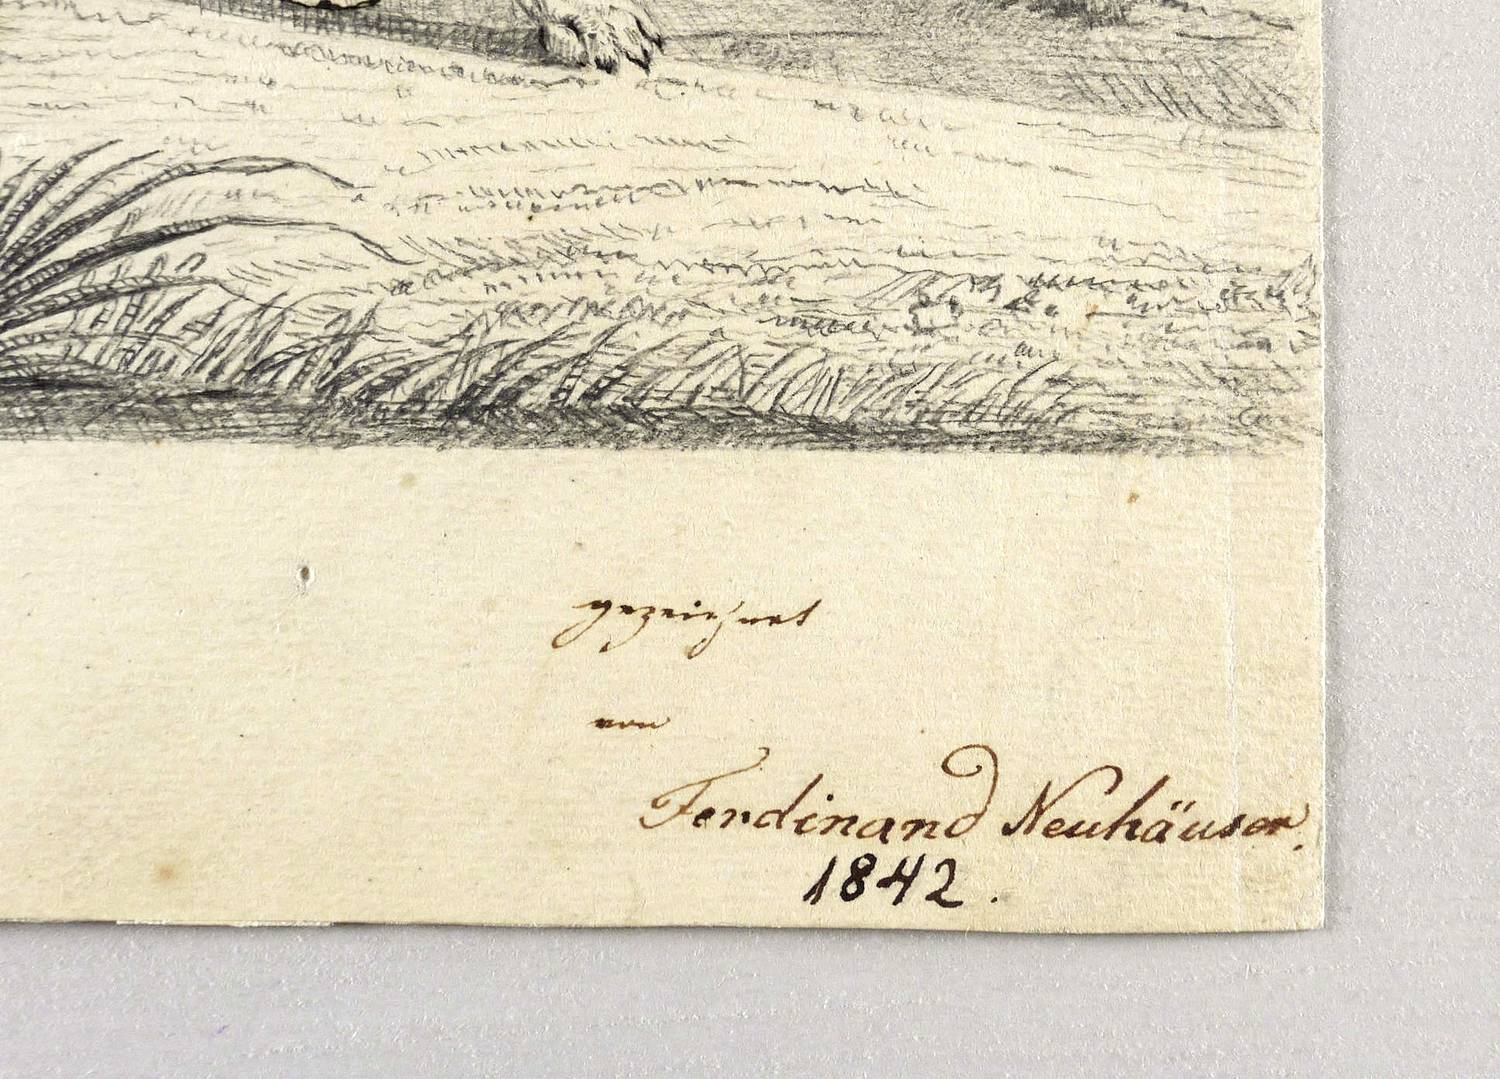 gezeichnet
von
Ferdinand Neuhäuser.
1842.